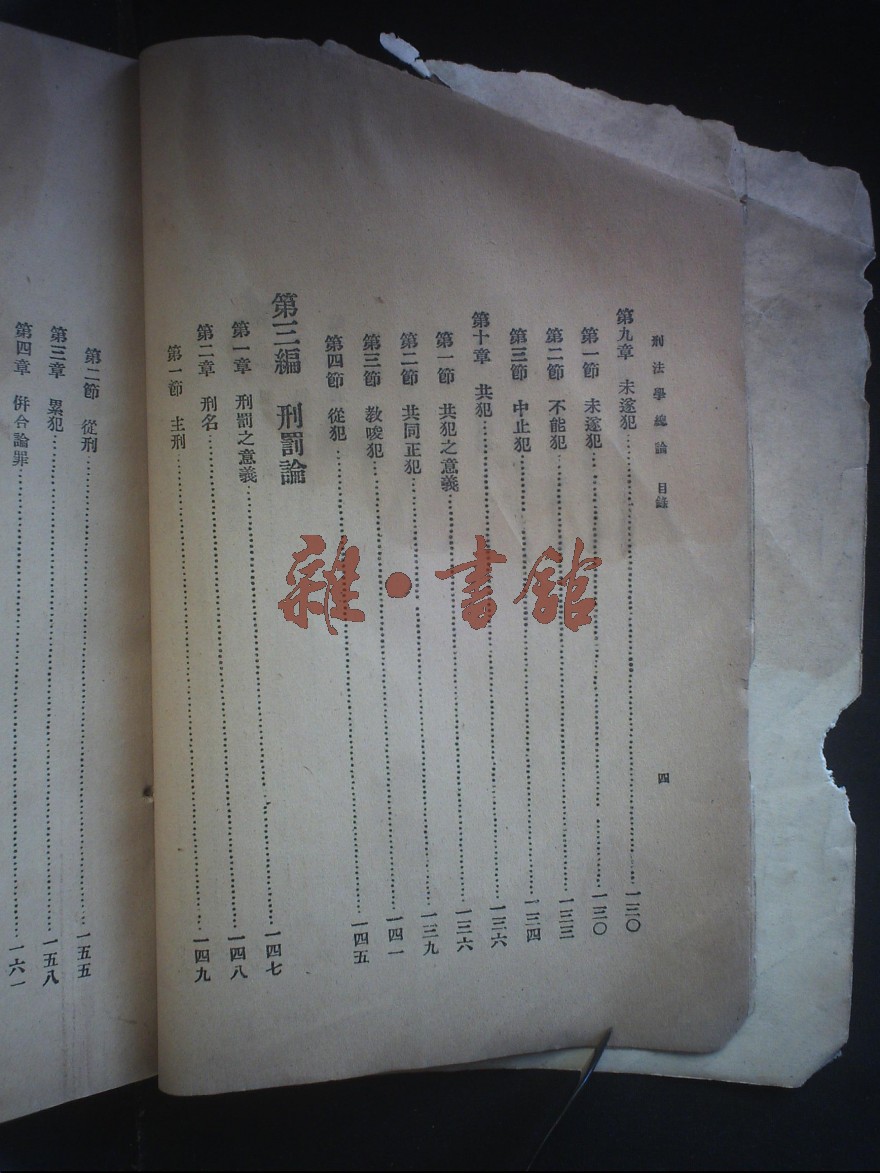 刑法學總論 目錄 四
第九章 未遂犯……一三〇
第一節 未遂犯……一三〇
第二節 不能犯……一三三
第三節 中止犯……一三四
第十章 共犯……一三六
第一節 共犯之意義……一三六
第二節 共同正犯……一三九
第三節 教唆犯……一四一
第四節 從犯……一四五
第三編 刑罰論
第一章 刑罰之意義……一四七
第二章 刑名……一四八
第一節 主刑……一四九
第二節 從刑……一五五
第三章 累犯……一五八
第四章 併合論罪……一六一
雜·書館